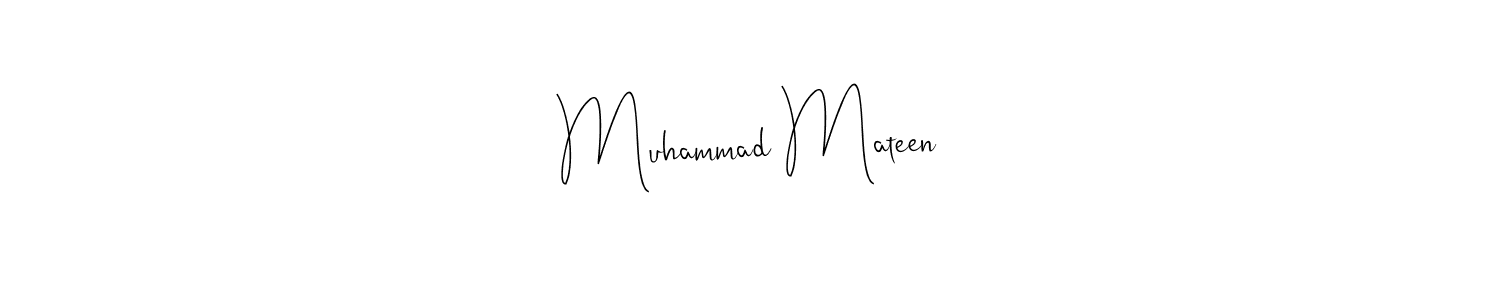 Muhammad Mateen